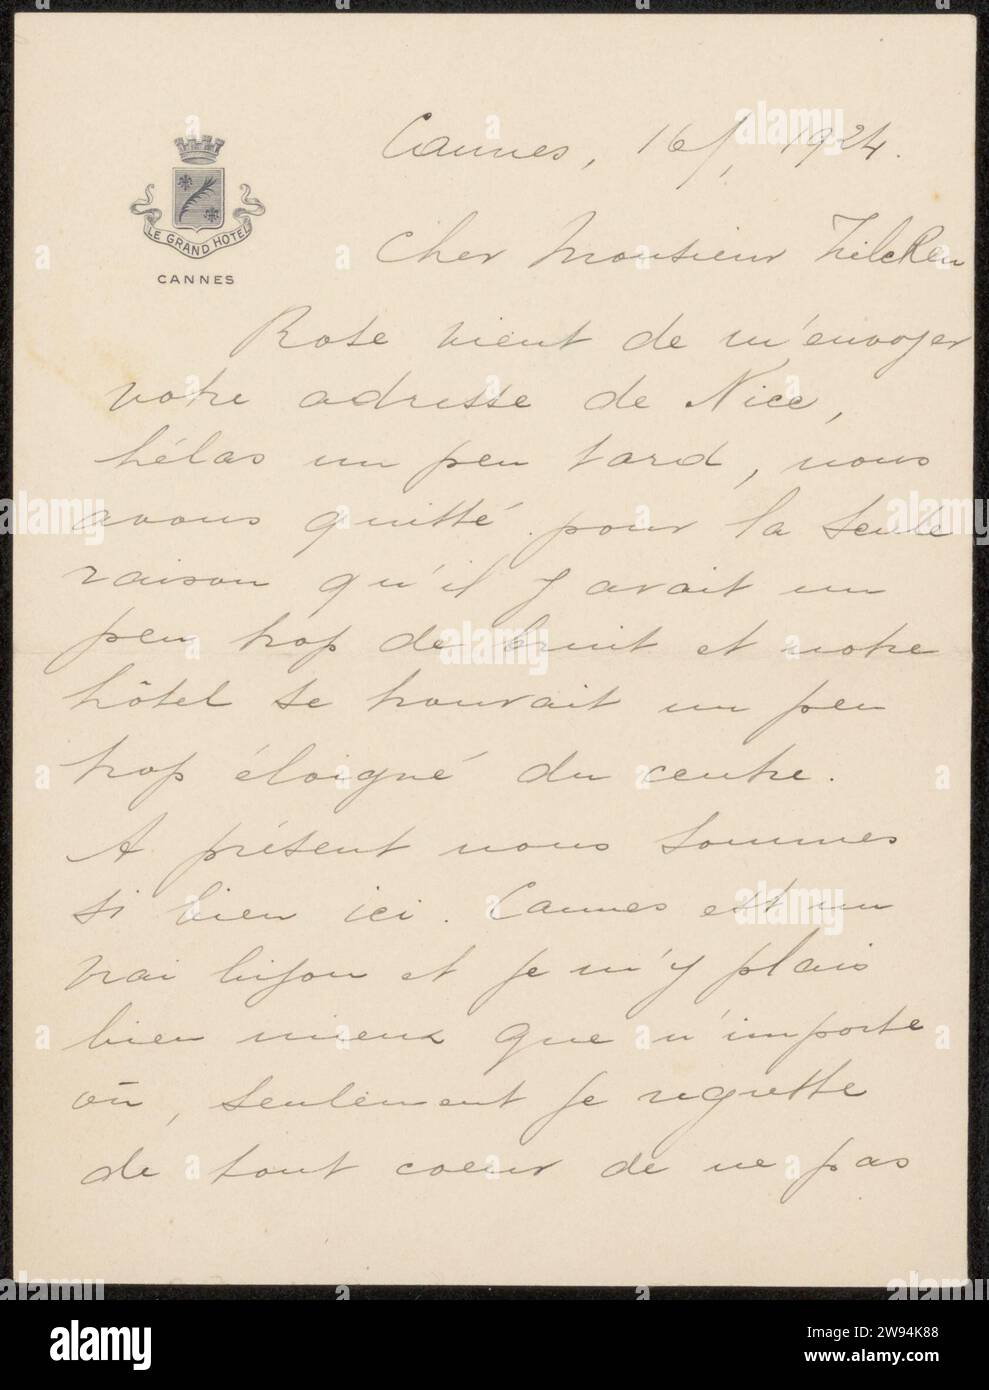 Cannes, 16/, 1924.
LE GRAND HOTEL
CANNES
Cher Monsieur Zilcken
Rose vient de m'envoyer
votre adresse de Nice,
hélas un peu tard, nous
avons quitté pour la seule
raison qu'il y avait un
peu trop de bruit et notre
hôtel se trouvait un peu
trop éloigné du centre.
A présent nous sommes
si bien ici. Cannes est un
vrai bijou et je m'y plais
bien mieux que n'importe
où, seulement je regrette
de tout coeur de ne pas
alamy
Image ID: 2W94K88
www.alamy.com